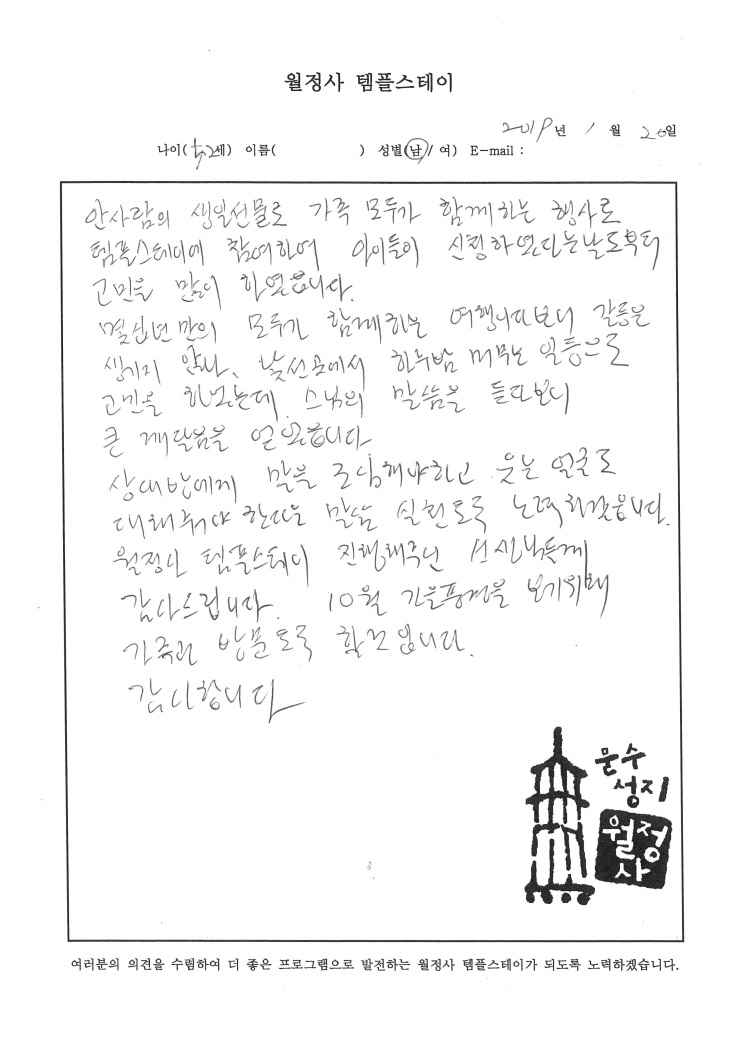 월정사 템플스테이
2019년 1월 20일
나이(52세) 이름( ) 성별(남/여) E-mail :
안사람의 생일선물로 가족 모두가 함께하는 행사로
템플스테이에 참여하여 아이들이 신청하였다는날로부터
고민을 많이 하였읍니다.
몇십년만의 모두가 함께하는 여행이다보니 갈등은
생기지 않나, 낯선곳에서 하루밤 머무는 일등으로
고민을 하였는데 스님의 말씀을 듣다보니
큰 깨달음을 얻었읍니다
상대방에게 말을 조심해야하고 웃는 얼굴로
대해줘야 한다는 말씀 실천토록 노력하겠읍니다.
월정사 템플스테이 진행해주신 선생님들께
감사드립니다. 10월 가을풍경을 보기위해
가족과 방문토록 할것입니다.
감사합니다
문수
성지
월정
사
여러분의 의견을 수렴하여 더 좋은 프로그램으로 발전하는 월정사 템플스테이가 되도록 노력하겠습니다.